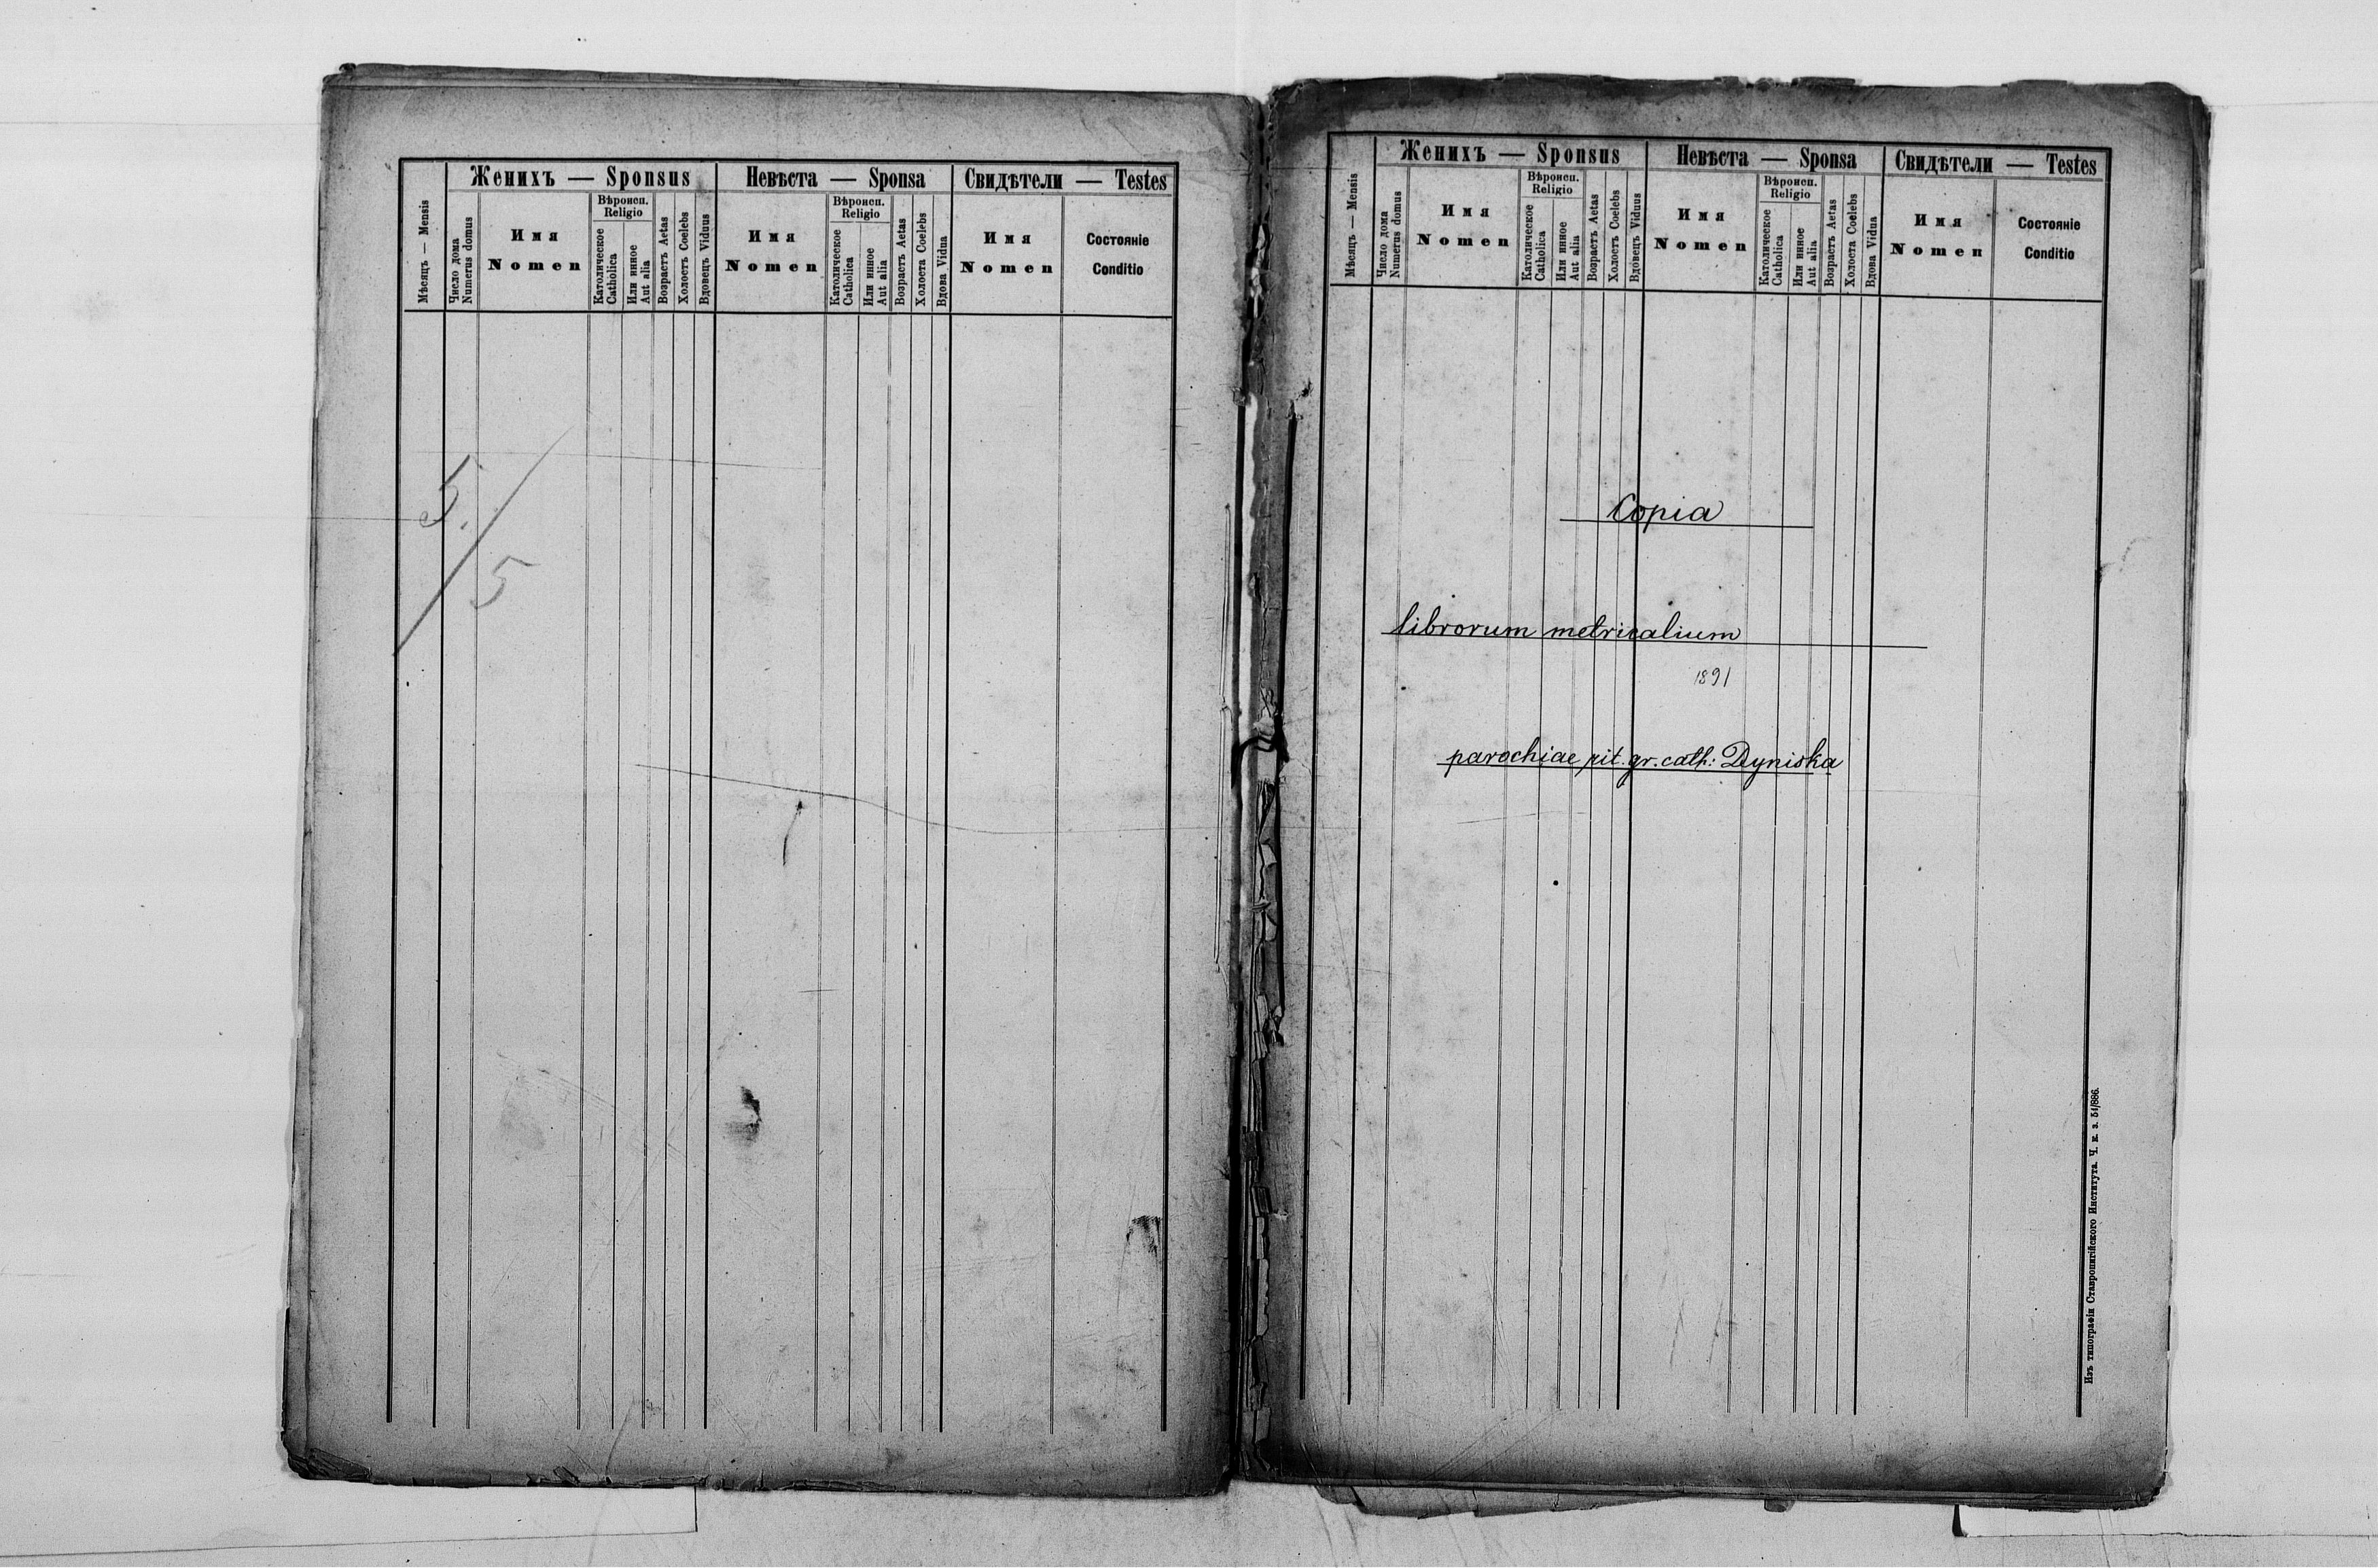 Женихъ — Sponsus
Невѣста — Sponsa
Свидѣтели — Testes
Мѣсяцъ — Mensis
Число дома
Numerus domus
Имя
Nomen
Вѣроисп.
Religio
Католическое
Catholica
Или инное
Aut alia
Возрастъ Aetas
Холостъ Coelebs
Вдовецъ Viduus
Имя
Nomen
Вѣроисп.
Religio
Католическое
Catholica
Или инное
Aut alia
Возрастъ Aetas
Холоста Coelebs
Вдова Vidua
Имя
Nomen
Состоянiе
Conditio
5.
5
Женихъ — Sponsus
Невѣста — Sponsa
Свидѣтели — Testes
Мѣсяцъ — Mensis
Число дома
Numerus domus
Имя
Nomen
Вѣроисп.
Religio
Католическое
Catholica
Или инное
Aut alia
Возрастъ Aetas
Холостъ Coelebs
Вдовецъ Viduus
Имя
Nomen
Вѣроисп.
Religio
Католическое
Catholica
Или инное
Aut alia
Возрастъ Aetas
Холоста Coelebs
Вдова Vidua
Имя
Nomen
Состоянiе
Conditio
Copia
librorum metricalium
1891
parochiae rit. gr. cath: Dyniska
Изъ типографіи Ставропигійского Института. Ч. к. з. 54/886.